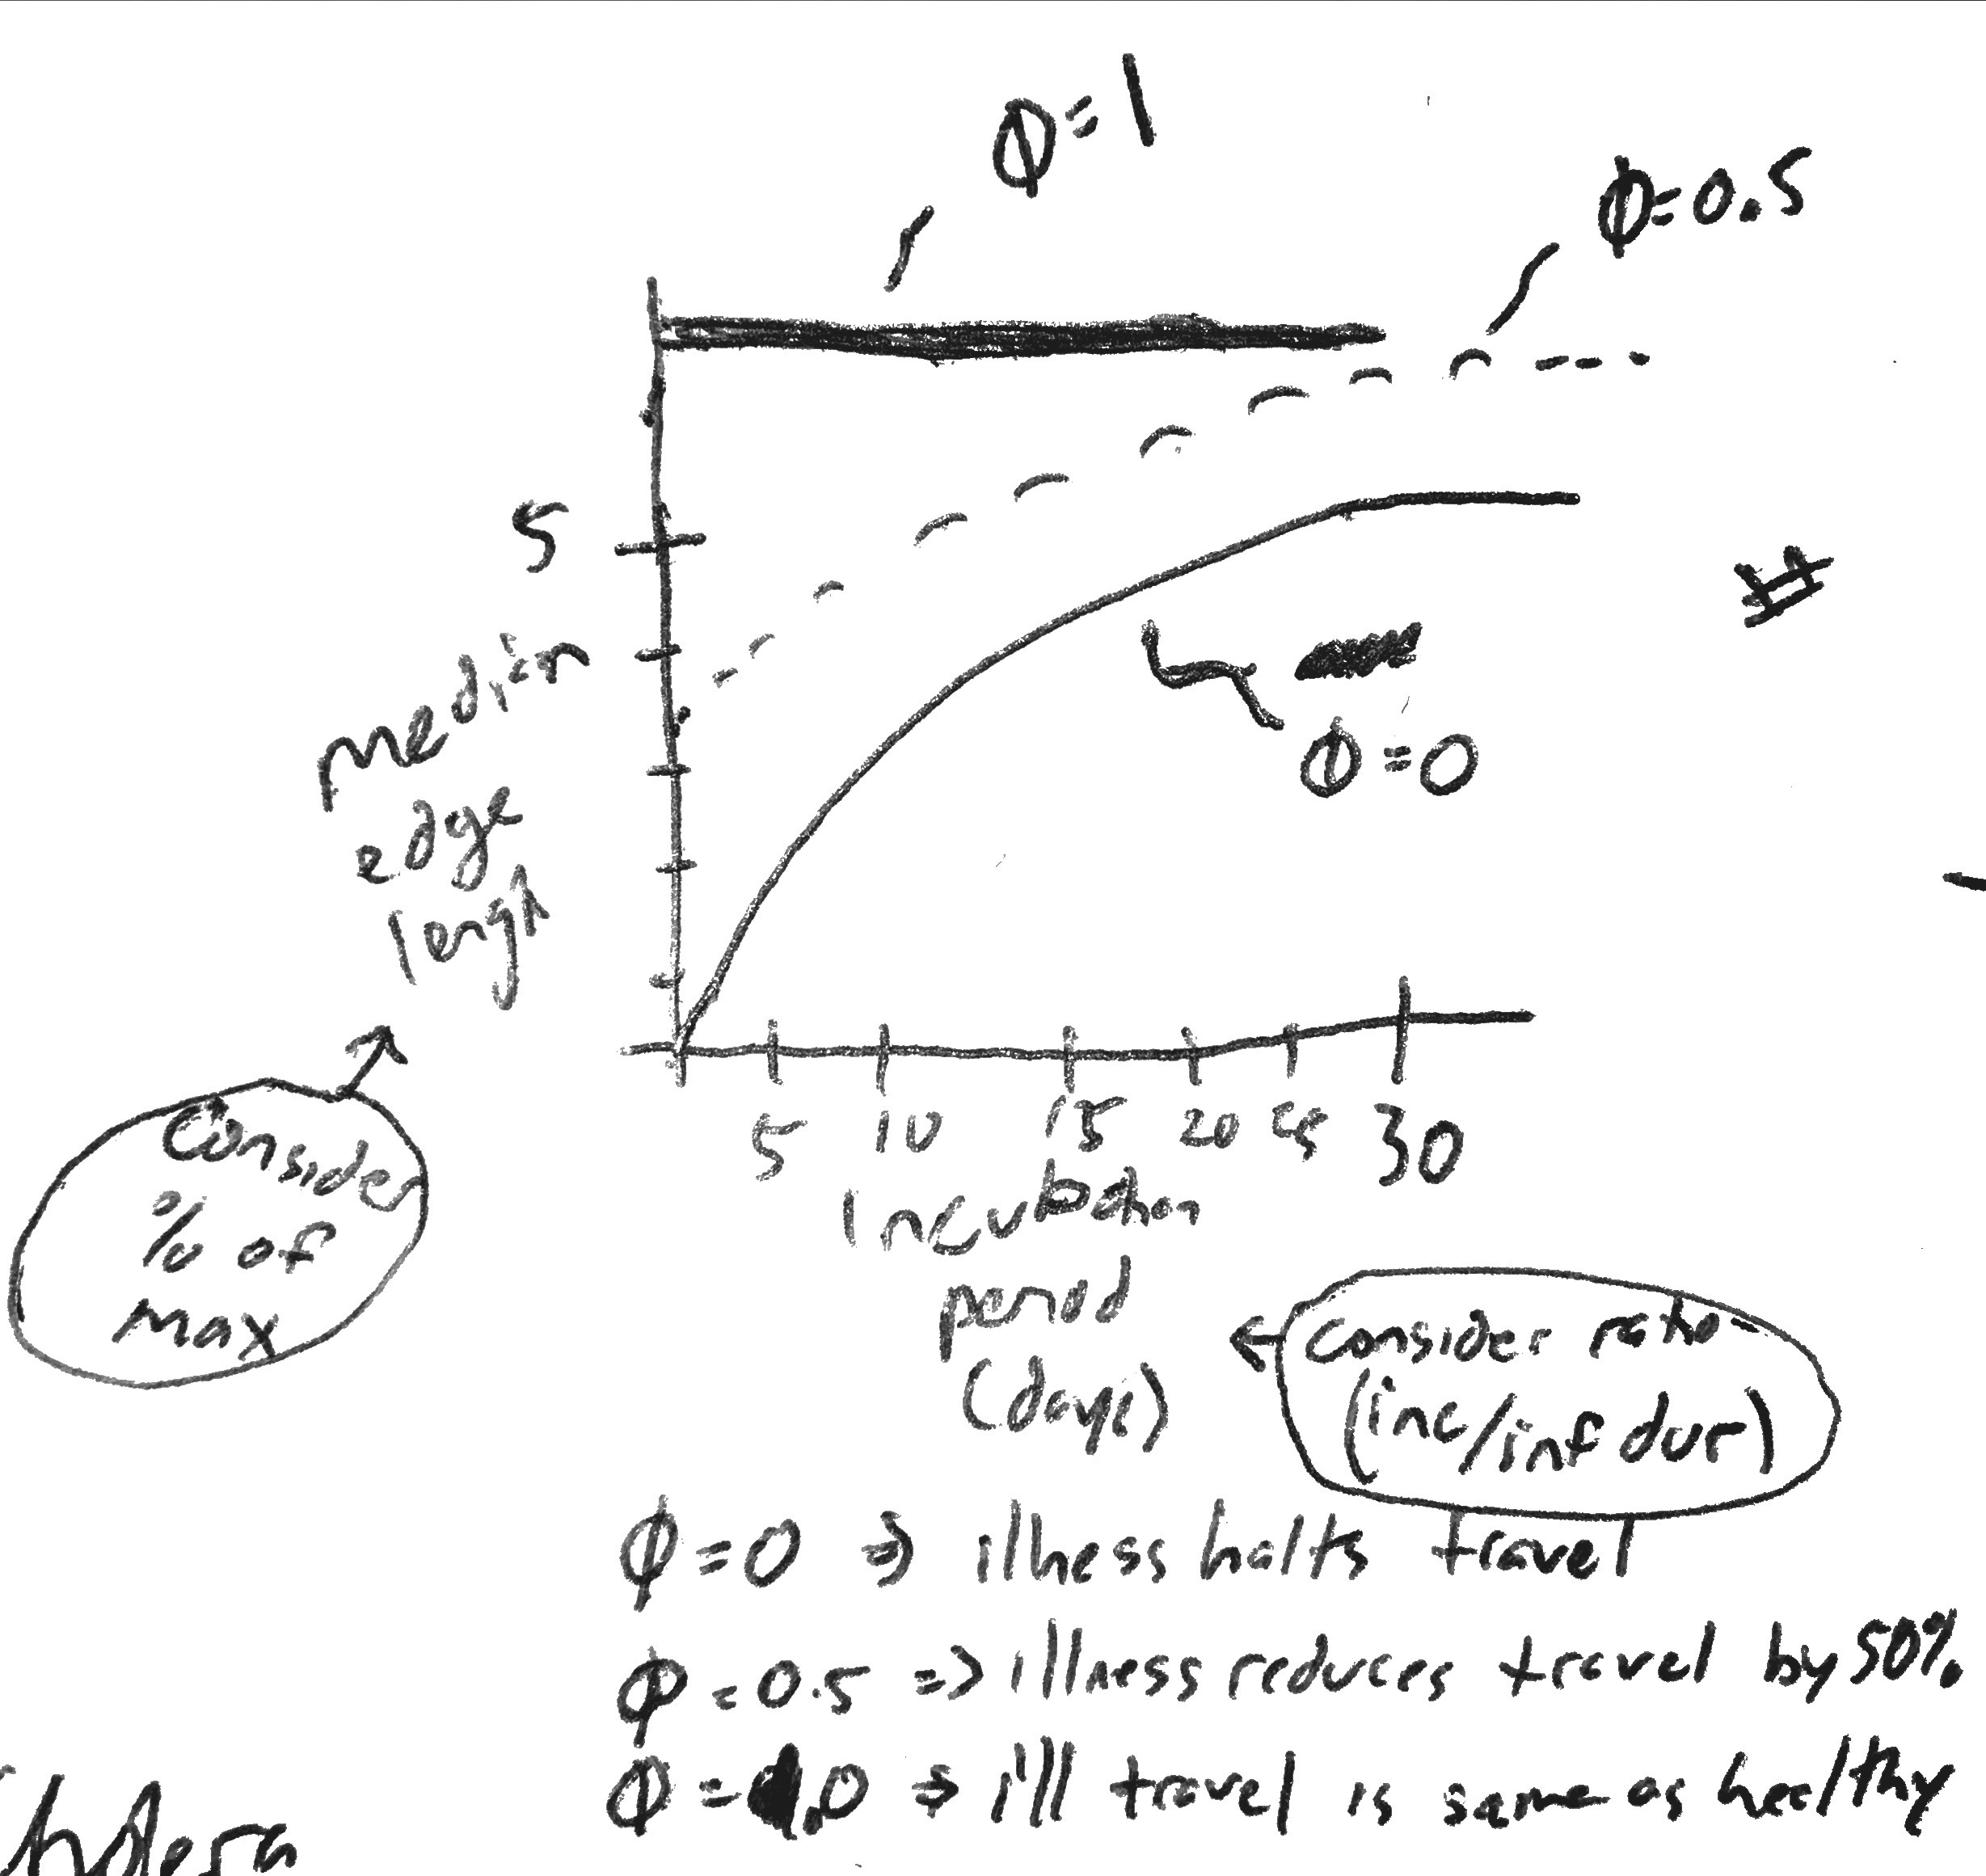 ϕ=1
ϕ=0.5
5
median
edge
length
ϕ=0
5 10 15 20 25 30
Incubation
period
(days)
Consider
% of
max
Consider ratio
(inc/inf dur)
ϕ=0 ⇒ illness halts travel
ϕ=0.5 ⇒ illness reduces travel by 50%
ϕ=1.0 ⇒ ill travel is same as healthy